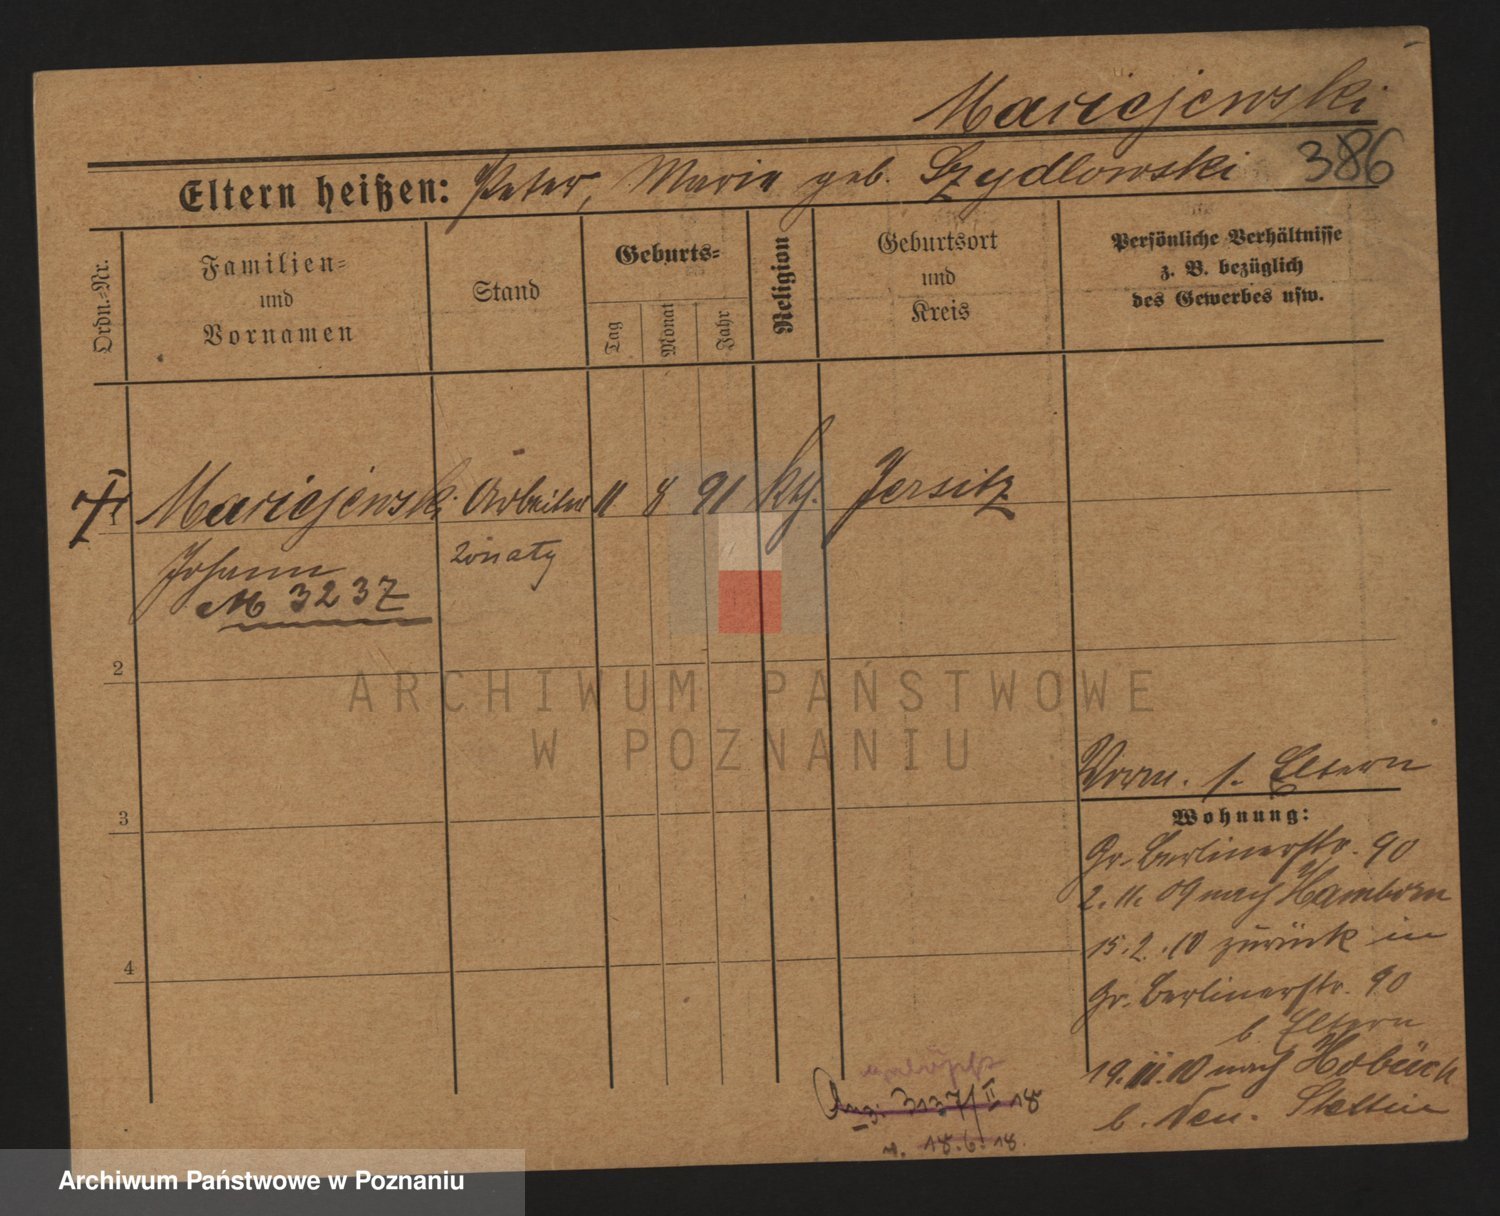 Maciejewski
386
Eltern heißen: Peter, Marie geb. Szydlowski
Ordn.-Nr.
Familien-
und
Vornamen
Stand
Geburts-
Tag
Monat
Jahr
Religion
Geburtsort
und
Kreis
Persönliche Verhältnisse
z. B. bezüglich
des Gewerbes usw.
1 Maciejewski Arbeiter 11 8 91 kg. Jersitz
Johann żonaty
M 3237
2
ARCHIWUM PAŃSTWOWE
W POZNANIU
3
4
Vorm. s. Eltern
Wohnung:
Gr. Berlinerstr. 90
2. 11. 09 nach Hamborn
15. 2. 10 zurück in
Gr. Berlinerstr. 90
b. Eltern
19. III. 10 nach
b. Neu. Stettin
gelöscht
Anz. 3137/II 18
v. 18. 6. 18.
Archiwum Państwowe w Poznaniu